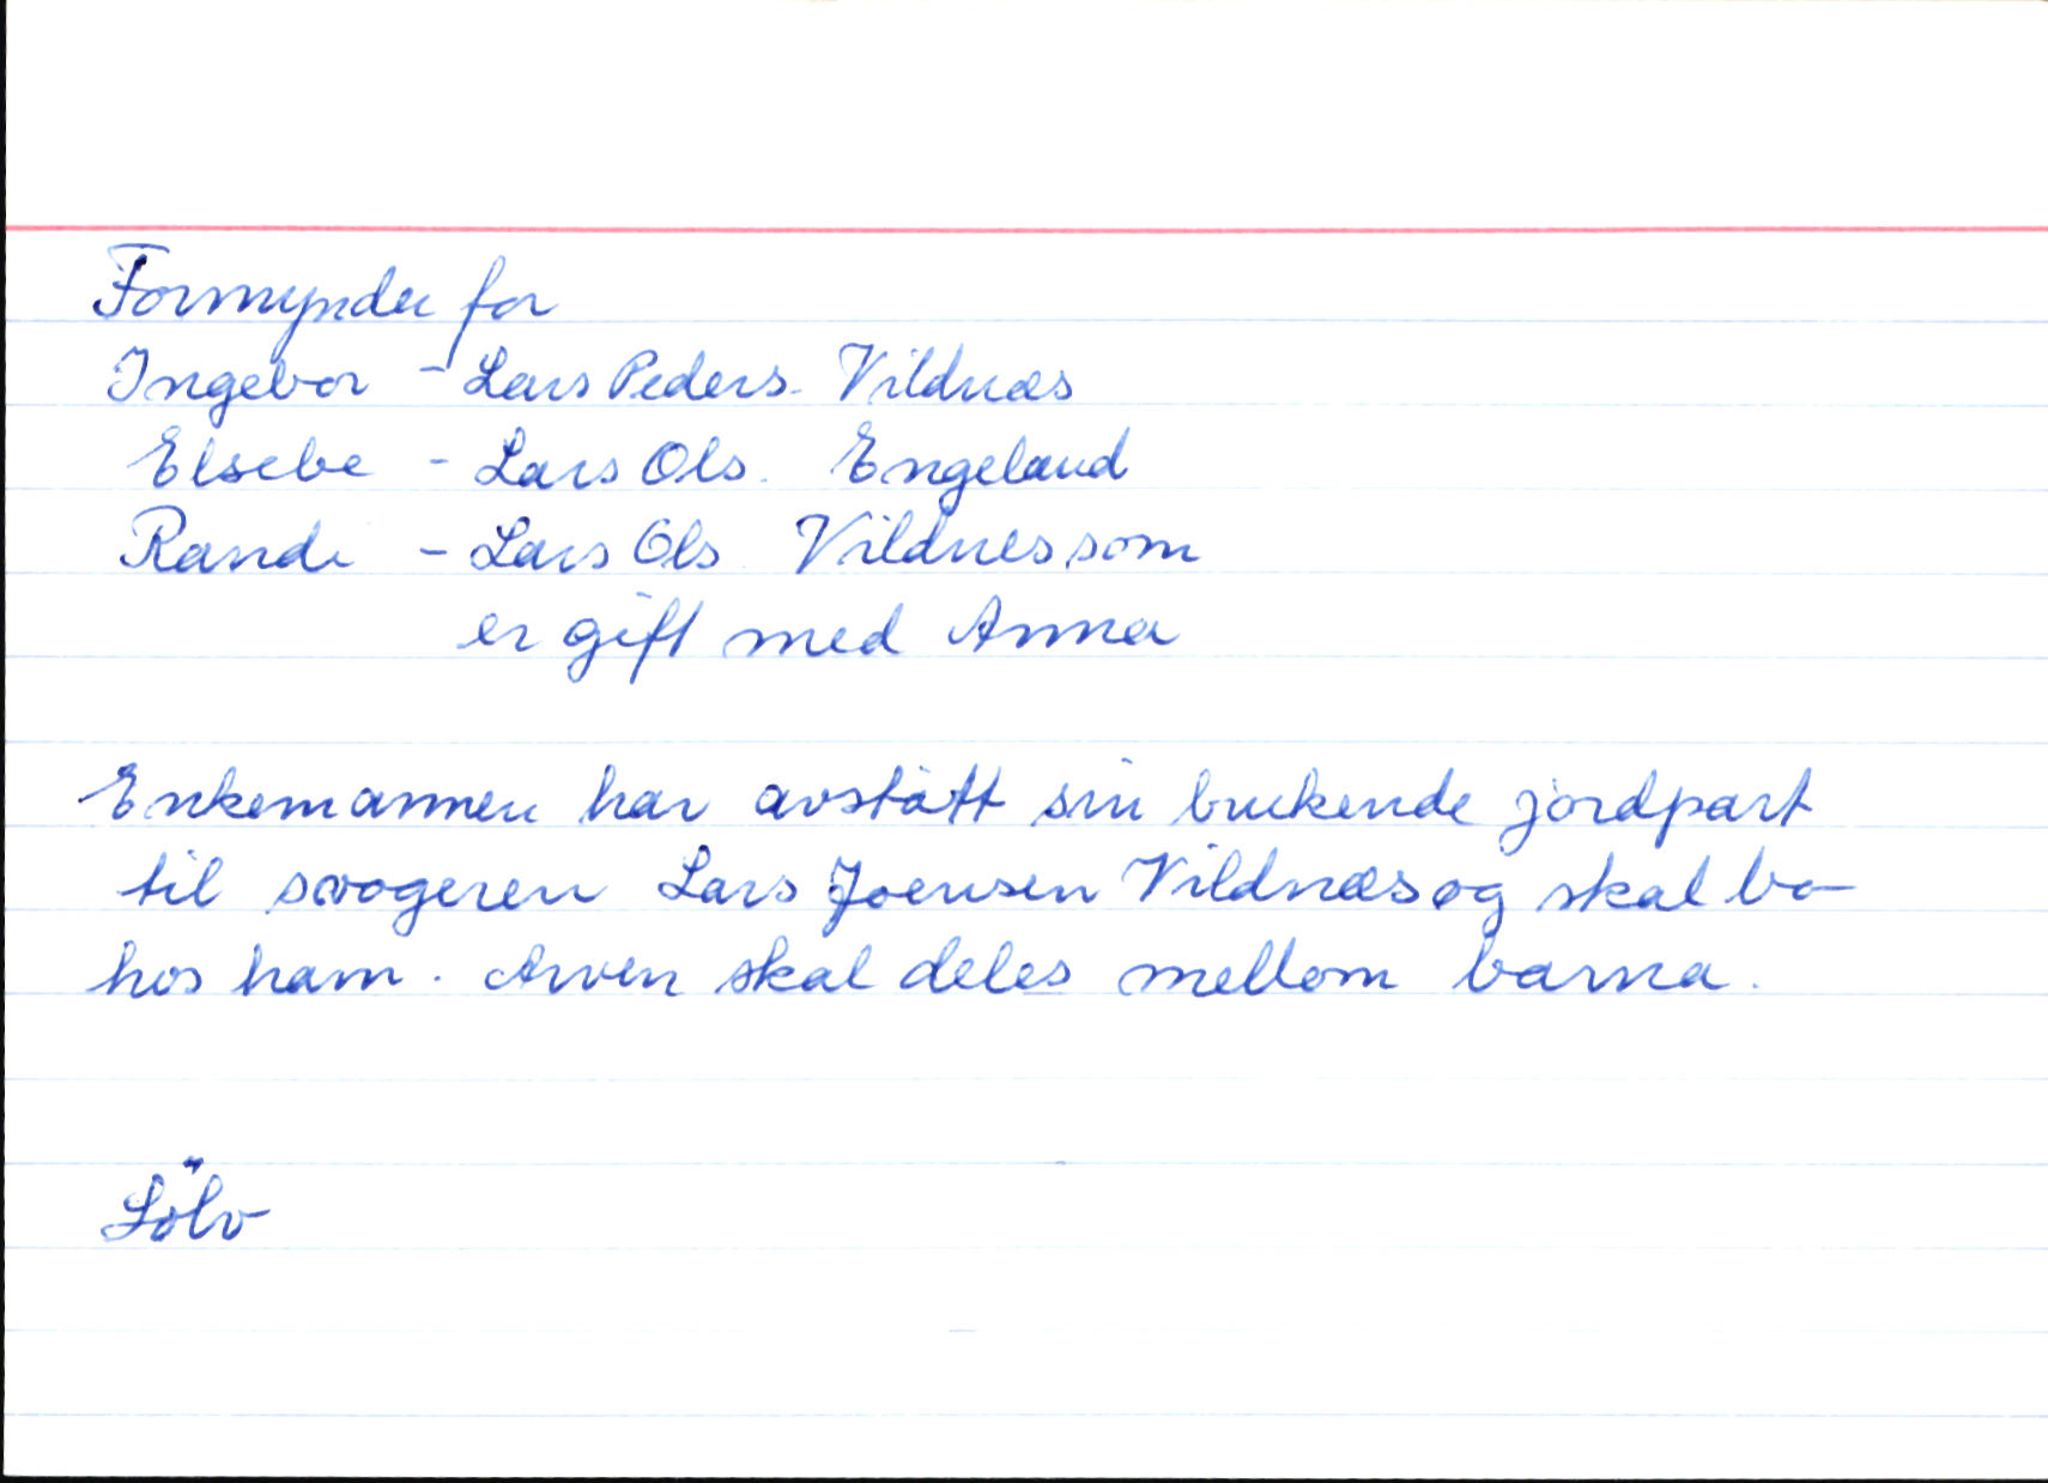 Formynder for
Ingebor - Lars Peders. Vildnæs
Elsebe - Lars Ols. Engeland
Randi - Lars Ols Vildnes som
er gift med Anna
Enkemannen har avstått sin brukende jordpart
til svogeren Lars Joensen Vildnæs og skal bo
hos ham. Arven skal deles mellom barna.
Sölv